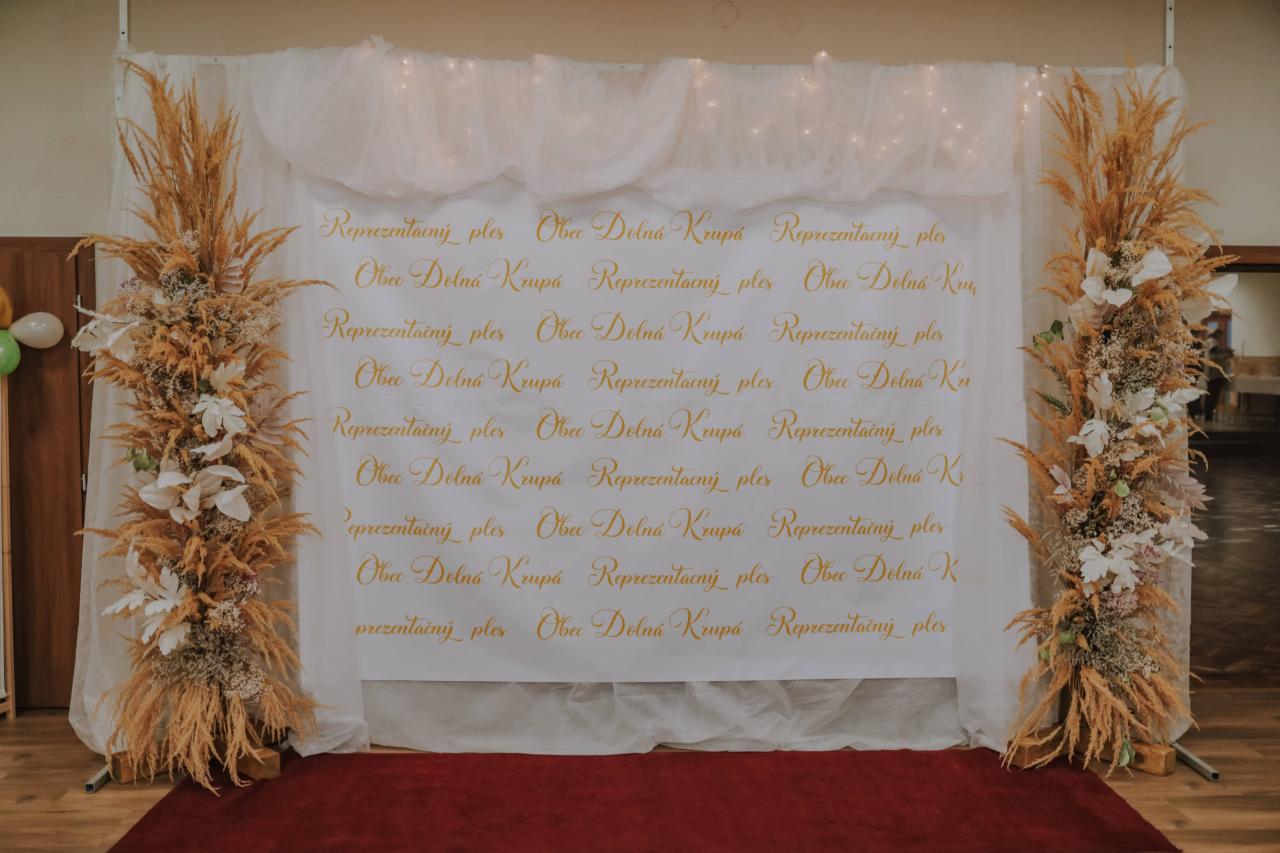 Reprezentacný ples Obec Dolná Krupá Reprezentacný ples
Obec Dolná Krupá Reprezentacný ples Obec Dolná Krup
Reprezentačný ples Obec Dolná Krupá Reprezentačný ples
Obec Dolná Krupá Reprezentacný ples Obec Dolná Kru
Reprezentacný ples Obec Dolná Krupá Reprezentacný ples
Obec Dolná Krupá Reprezentacný ples Obec Dolná Kr
eprezentačný ples Obec Dolná Krupá Reprezentačný ples
Obec Dolná Krupá Reprezentacný ples Obec Dolná K
prezentačný ples Obec Dolná Krupá Reprezentačný ples